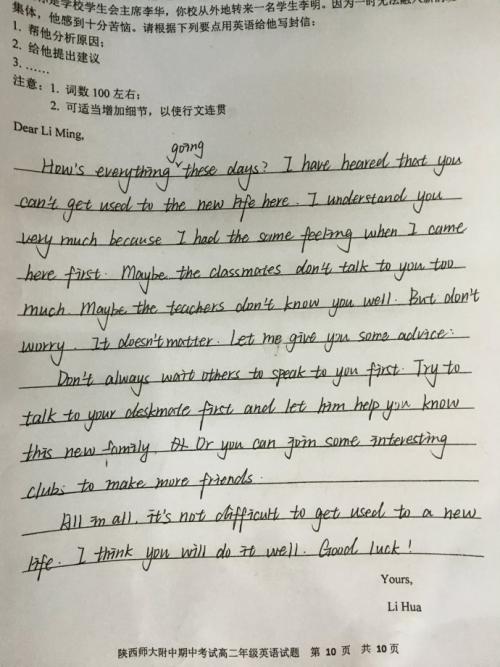 是学校学生会主席李华，你校从外地转来一名学生李明。因为一时无法融入新的
集体，他感到十分苦恼。请根据下列要点用英语给他写封信：
1. 帮他分析原因；
2. 给他提出建议
3. ……
注意：1. 词数 100 左右；
2. 可适当增加细节，以使行文连贯
Dear Li Ming,
going
How's everything ˅ these days? I have heared that you
can't get used to the new life here. I understand you
very much because I had the same feeling when I came
here first. Maybe the classmates don't talk to you too
much. Maybe the teachers don't know you well. But don't
worry. It doesn't matter. Let me give you some advice:
Don't always wait others to speak to you first. Try to
talk to your deskmate first and let him help you know
this new family. Or you can join some interesting
clubs to make more friends.
All in all, it's not difficult to get used to a new
life. I think you will do it well. Good luck!
Yours,
Li Hua
陕西师大附中期中考试高二年级英语试题 第 10 页 共 10 页